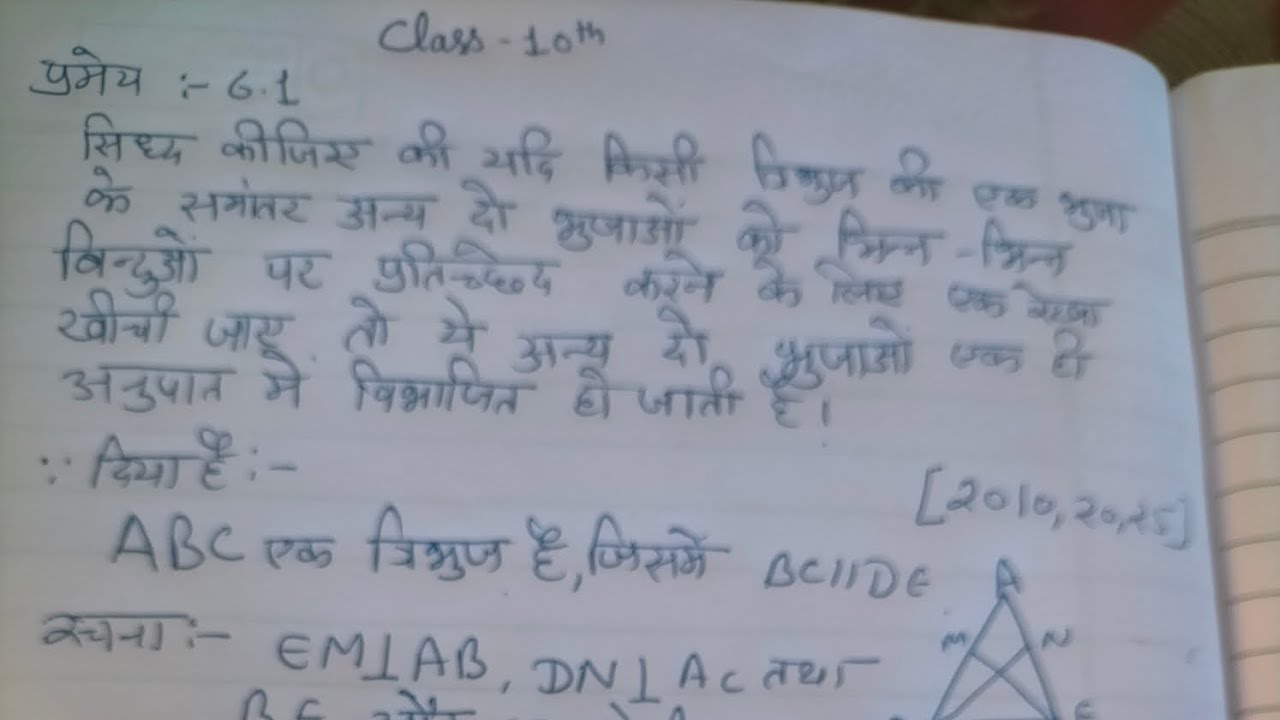 Class - 10th
प्रमेय :- 6.1
सिध्द कीजिए की यदि किसी त्रिभुज की एक भुजा
के समांतर अन्य दो भुजाओं को भिन्न - भिन्न
विन्दुओं पर प्रतिच्छेद करने के लिए एक रेखा
खीची जाए तो ये अन्य दो भुजाओं एक ही
अनुपात में विभाजित हो जाती है।
∵ दिया है :-
[2010, 20, 25]
ABC एक त्रिभुज है, जिसमें BC||DE
A
रचना :- EM⊥AB, DN⊥AC तथा
M N
BE और
E